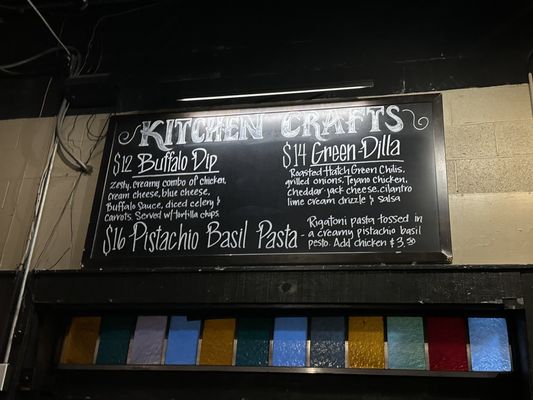 KITCHEN CRAFTS
$12 Buffalo Dip
Zesty, creamy combo of chicken,
cream cheese, blue cheese,
Buffalo Sauce, diced celery &
Carrots. Served w/ tortilla chips.
$14 Green-Dilla
Roasted Hatch Green Chilis,
grilled onions, Tejano Chicken,
cheddar-jack cheese, cilantro
lime cream drizzle & salsa
$16 Pistachio Basil Pasta -
Rigatoni pasta tossed in
a creamy pistachio basil
pesto. Add chicken $3.50